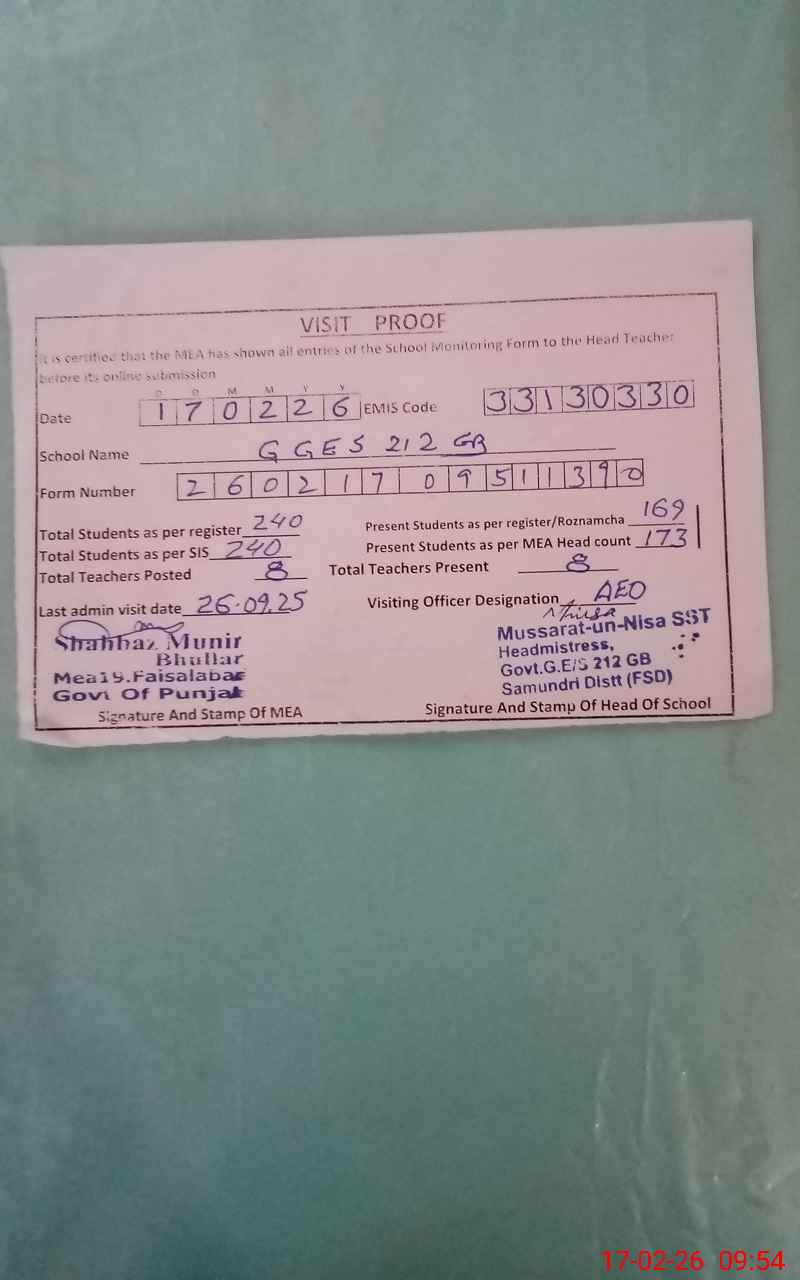 VISIT PROOF
It is certified that the MEA has shown all entries of the School Monitoring Form to the Head Teacher
before its online submission
D D M M Y Y
Date 1 7 0 2 2 6 EMIS Code 3 3 1 3 0 3 3 0
School Name G GES 212 GB
Form Number 2 6 0 2 1 7 0 9 5 1 1 3 9 0
Total Students as per register 240 Present Students as per register/Roznamcha 169
Total Students as per SIS 240 Present Students as per MEA Head count 173
Total Teachers Posted 8 Total Teachers Present 8
Last admin visit date 26.09.25 Visiting Officer Designation AEO
Shahbaz Munir
Bhullar
Mea19.Faisalabad
Govt Of Punjab
Signature And Stamp Of MEA
Mussarat-un-Nisa SST
Headmistress,
Govt.G.E/S 212 GB
Samundri Distt (FSD)
Signature And Stamp Of Head Of School
17-02-26 09:54